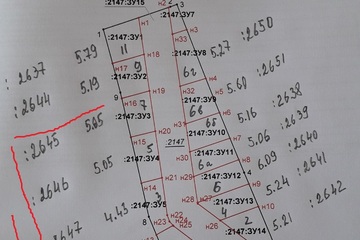 :2147:ЗУ15
н2
3
:2147:ЗУ7
1
н1
:2147:ЗУ1
н33
:2650
5.79
11
н18
:2147:ЗУ8
5.27
: 2637
н17
9
:2147:ЗУ2
6г
н4
:2651
: 2644
5.19
н32
5.60
9
н19
:2147:ЗУ9
н16
7
6в
н5
: 2638
5.05
:2147:ЗУ3
н31
6б
н6
5.16
: 2639
: 2645
н20
:2147:ЗУ10
н15
5
2147
н30
н7
5.06
: 2640
5.05
:2147:ЗУ4
:2147:ЗУ11
6а
н8
6.09
: 2641
н14
н21
н29
:2147:ЗУ12
: 2646
3
6
н9
5.24
: 2642
4.43
:2147:ЗУ5
н28
:2147:ЗУ13
н27
4
н10
5.21
8
н13
н22
н23
н24
н25
н26
:2147:ЗУ14
2